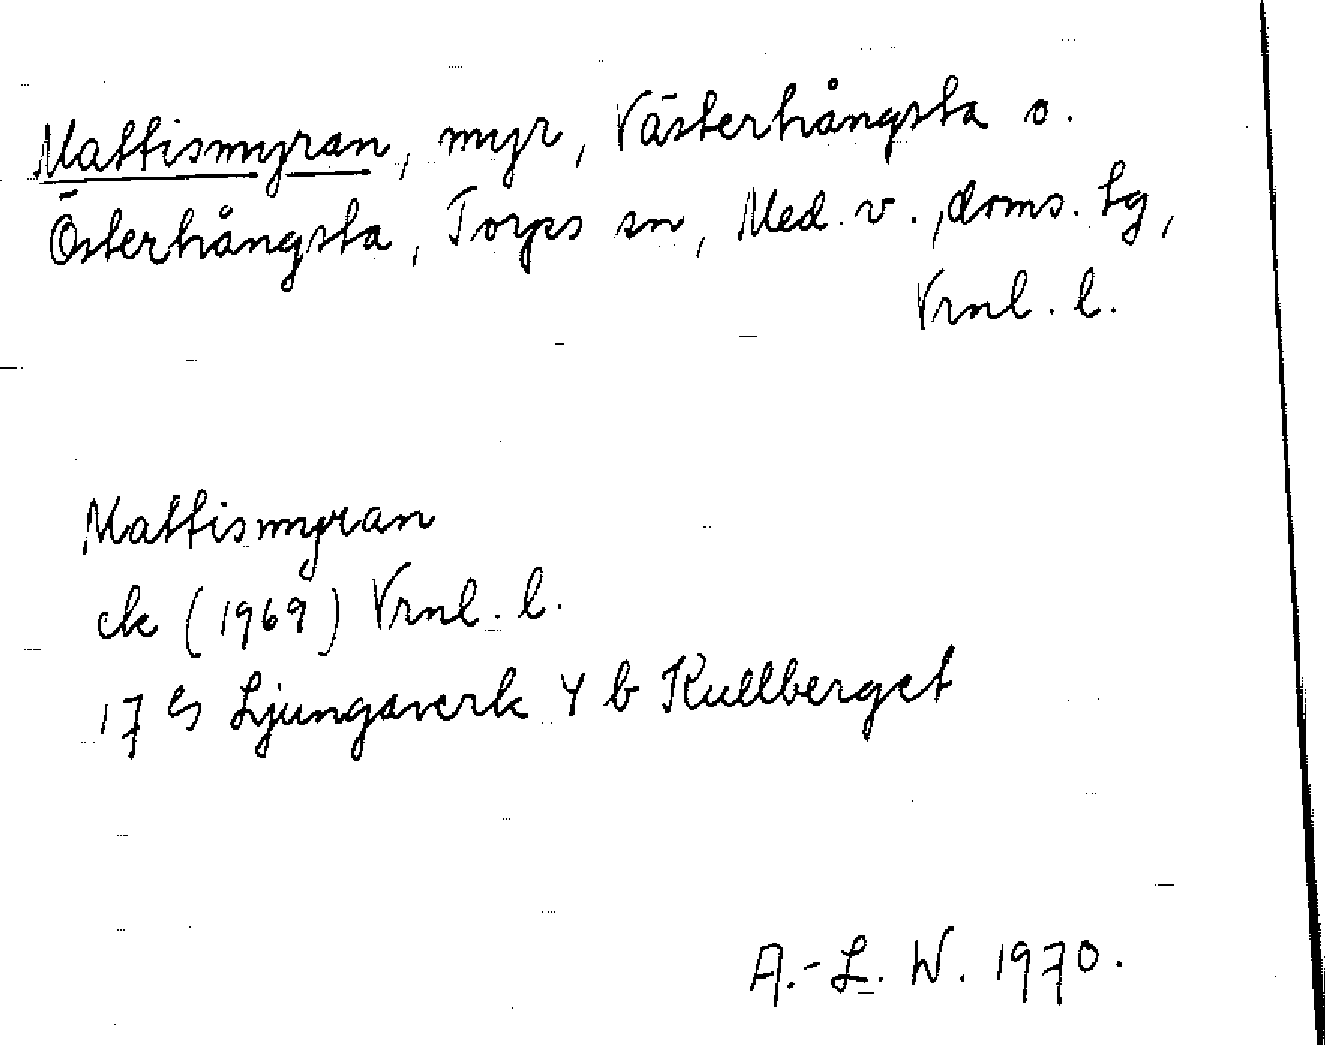 Mattismyran, myr, Västerhångsta o.
Österhångsta, Torps sn, Med. v., doms. tg,
Vrnl. l.
Mattismyran
ek (1969) Vrnl. l.
17 G Ljungaverk 4 b Kullberget
A.-L. W. 1970.